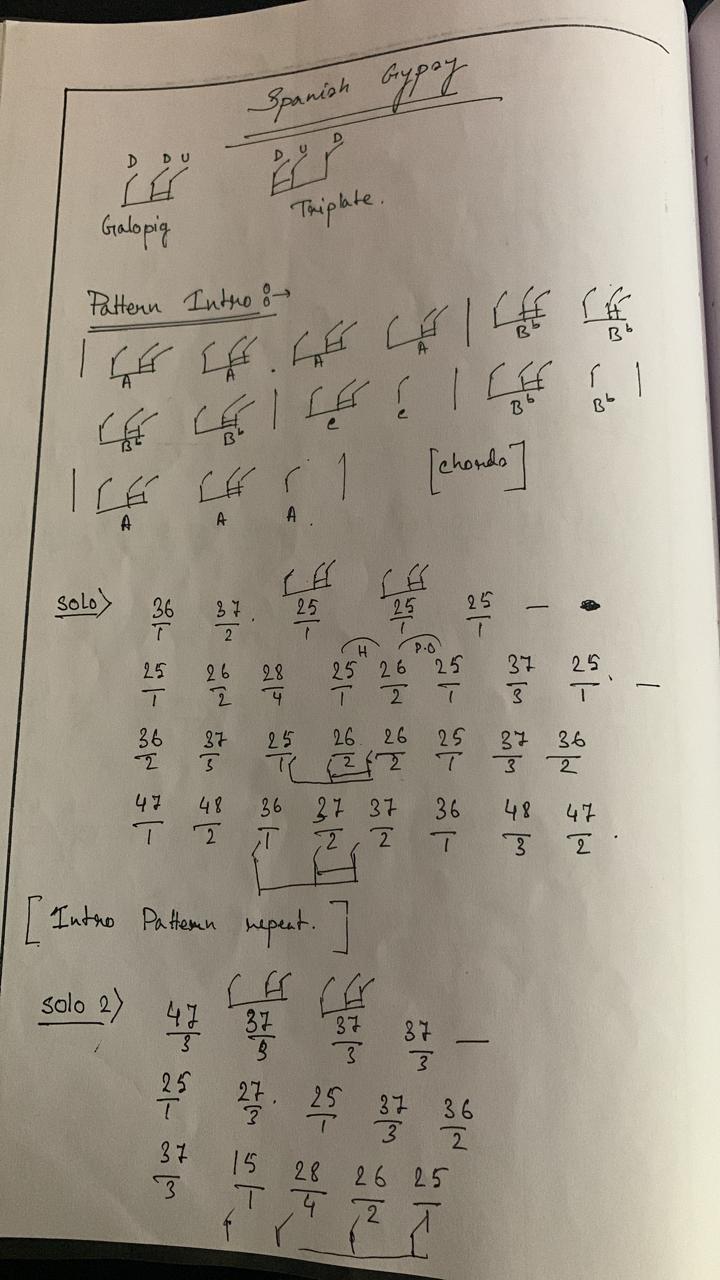 Spanish Gypsy
D D U D U D
Galopig Triplate.
Pattern Intro :→
| A A . A A | Bb Bb
Bb Bb | C C | Bb Bb |
| A A A. | [chords]
Solo> 36/1 37/2 . 25/1 25/1 25/1 —
H P.O
25/1 26/2 28/4 25/1 26/2 25/1 37/3 25/1 . —
36/2 37/3 25/1 26/2 26/2 25/1 37/3 36/2
47/1 48/2 36/1 37/2 37/2 36/1 48/3 47/2 .
[Intro Pattern repeat.]
Solo 2> 47/3 37/3 37/3 37/3 —
25/1 27/3 . 25/1 37/3 36/2
37/3 15/1 28/4 26/2 25/1